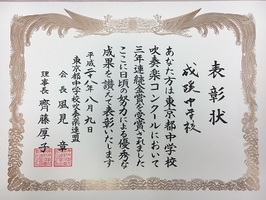 表彰状
成瀬中学校
あなた方は東京都中学校
吹奏楽コンクールにおいて
三年連続金賞を受賞されました
ここに日頃の努力による優秀な
成果を讃えて表彰いたします
平成二十八年八月九日
東京都中学校吹奏楽連盟
会長 風見 章
理事長 齊藤厚子